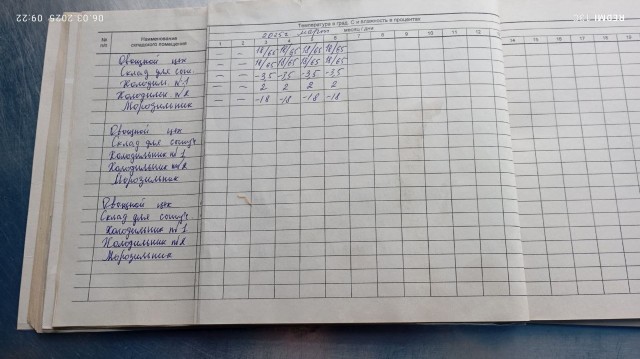 09:22 06.03.2025
REDMI
Температура в град. С и влажность в процентах
№ п/п
Наименование складского помещения
2025г март месяц / дни
1 2 3 4 5 6 7 8 9 10 11 12
14 15 16 17 18 19
Овощной цех — — 18/65 18/65 18/65 18/65
Склад для сып — — 18/65 18/65 18/65 18/65
Холодил. №1 — — -3,5 -3,5 -3,5 -3,5
Холодильник №2 — — 2 2 2 2
Морозильник — — -18 -18 -18 -18
Овощной цех
Склад для сыпуч
Холодильник №1
Холодильник №2
Морозильник
Овощной цех
Склад для сыпуч
Холодильник №1
Холодильник №2
Морозильник